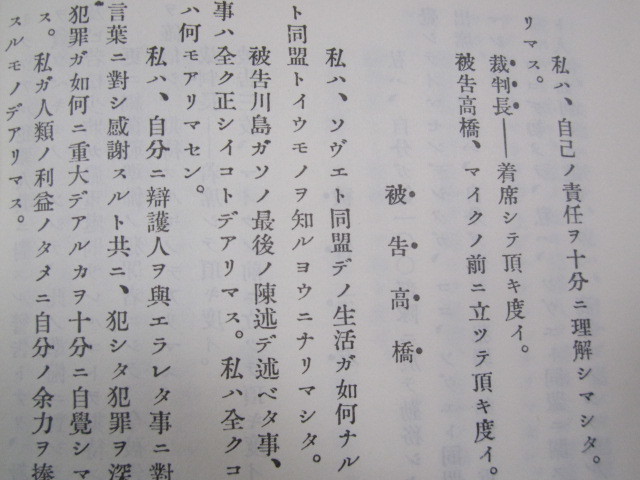 私ハ、自己ノ責任ヲ十分ニ理解シマシタ。
リマス。
裁判長──着席シテ頂キ度イ。
被告高橋、マイクノ前ニ立ツテ頂キ度イ。
被告高橋
私ハ、ソヴエト同盟デノ生活ガ如何ナル
ト同盟トイウモノヲ知ルヨウニナリマシタ。
被告川島ガソノ最後ノ陳述デ述ベタ事、
事ハ全ク正シイコトデアリマス。私ハ全クコ
ハ何モアリマセン。
私ハ、自分ニ辯護人ヲ與エラレタ事ニ對
言葉ニ對シ感謝スルト共ニ、犯シタ犯罪ヲ深
犯罪ガ如何ニ重大デアルカヲ十分ニ自覺シマ
ス。私ガ人類ノ利益ノタメニ自分ノ余力ヲ捧
スルモノデアリマス。